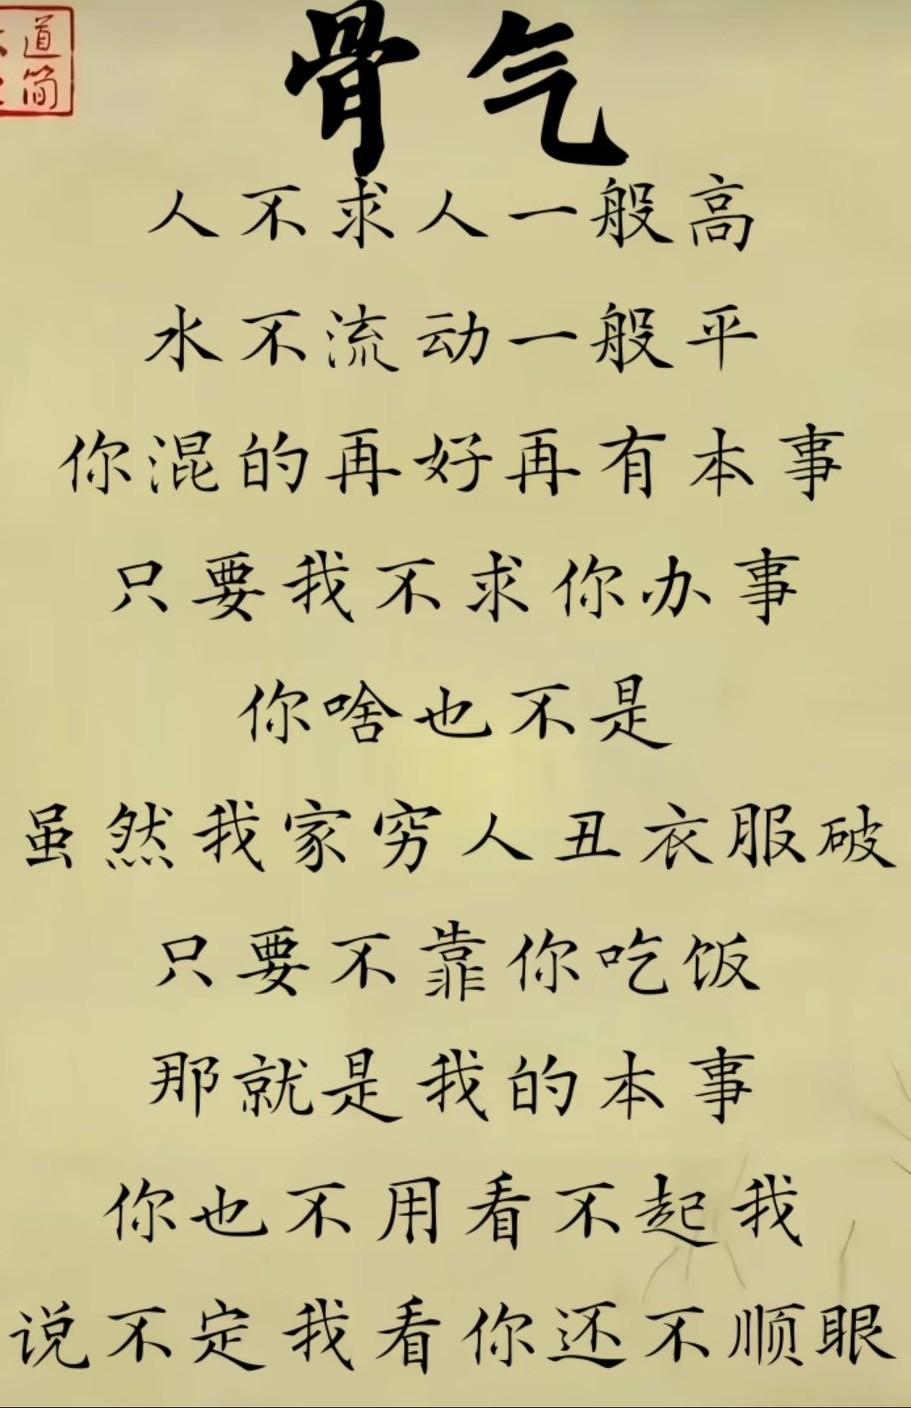 道
简
骨气
人不求人一般高
水不流动一般平
你混的再好再有本事
只要我不求你办事
你啥也不是
虽然我家穷人丑衣服破
只要不靠你吃饭
那就是我的本事
你也不用看不起我
说不定我看你还不顺眼